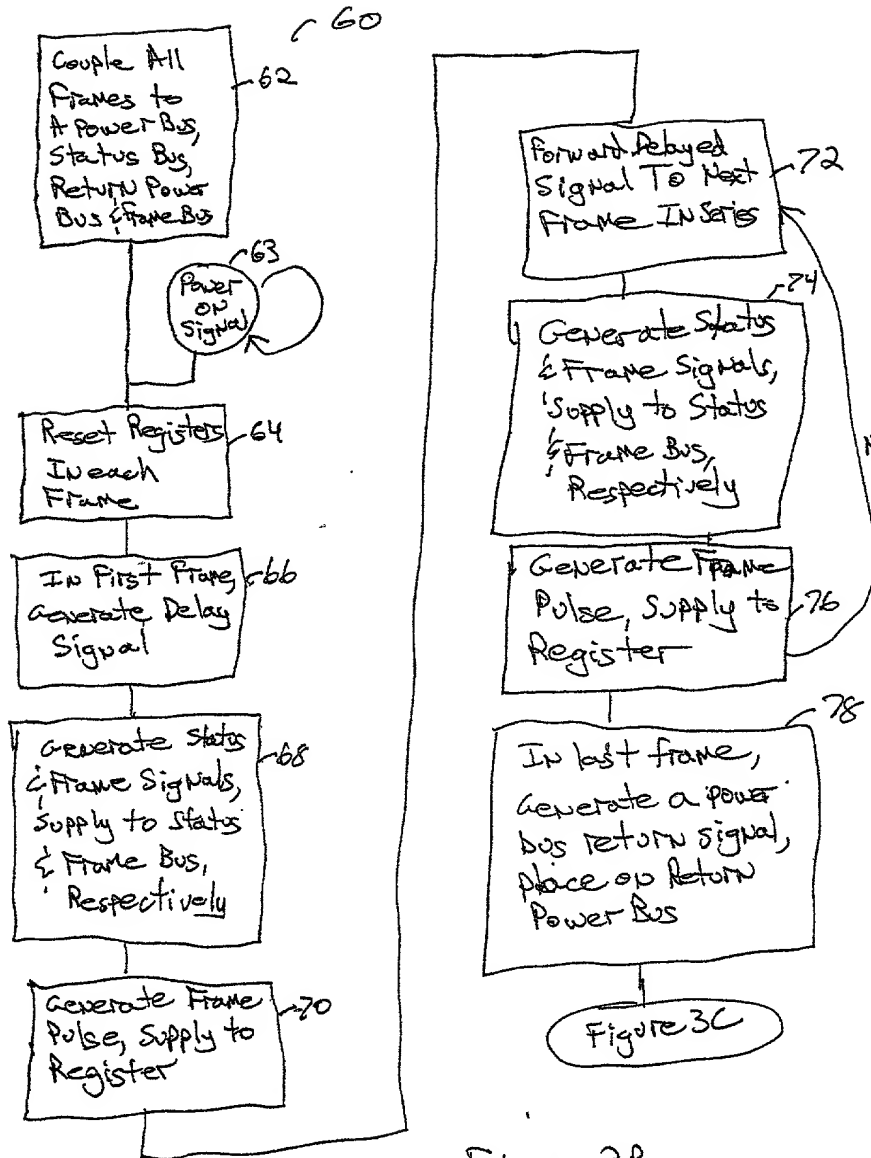 60
Couple All
Frames to
A Power Bus,
Status Bus,
Return Power
Bus & Frame Bus
62
63
Power
on
Signal
Reset Registers
In each
Frame
64
In First Frame,
Generate Delay
Signal
66
Generate Status
& Frame Signals,
Supply to Status
& Frame Bus,
Respectively
68
Generate Frame
Pulse, Supply to
Register
70
Forward Delayed
Signal To Next
Frame In Series
72
74
Generate Status
& Frame Signals,
Supply to Status
& Frame Bus,
Respectively
Generate Frame
Pulse, Supply to
Register
76
78
In last frame,
Generate a power
bus return signal,
place on Return
Power Bus
Figure 3C